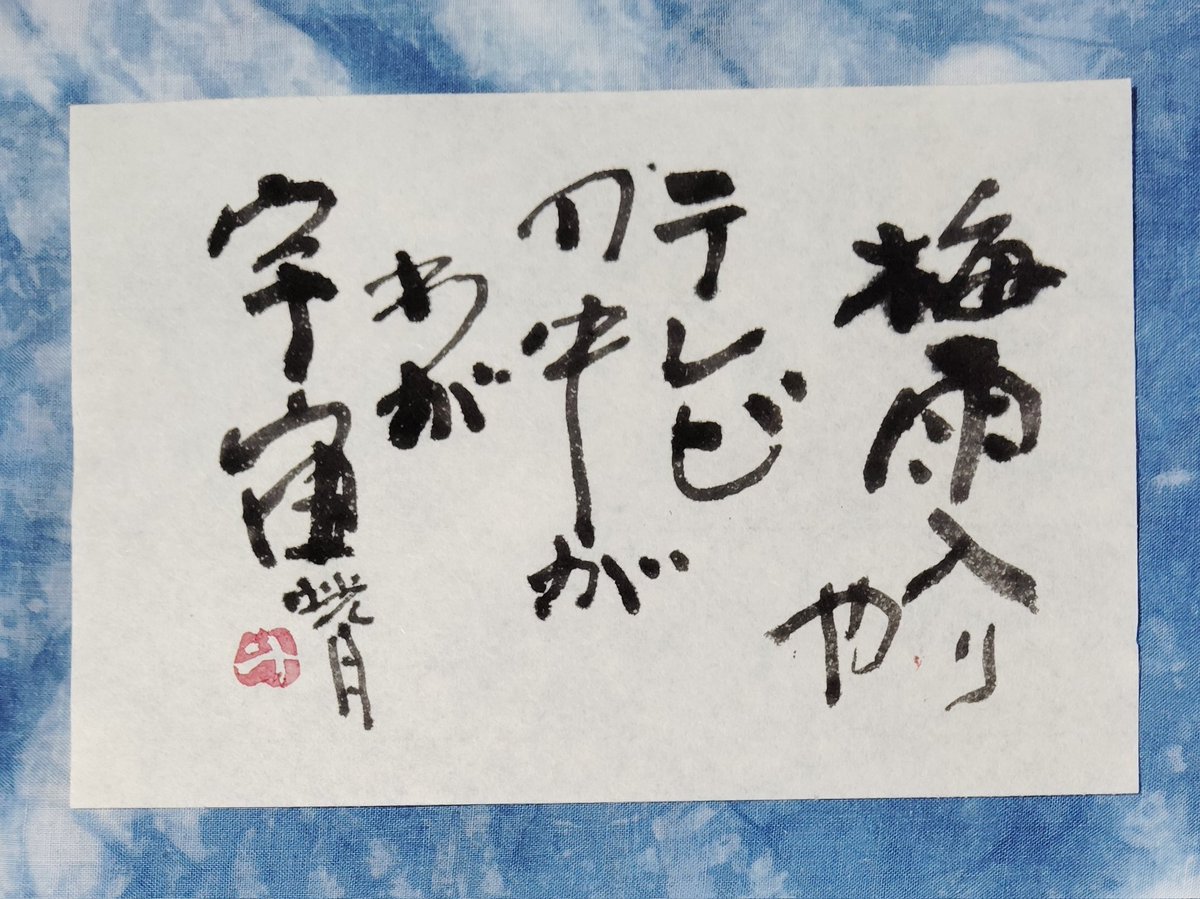 梅雨入り
や
テレビ
の中が
わが
宇宙